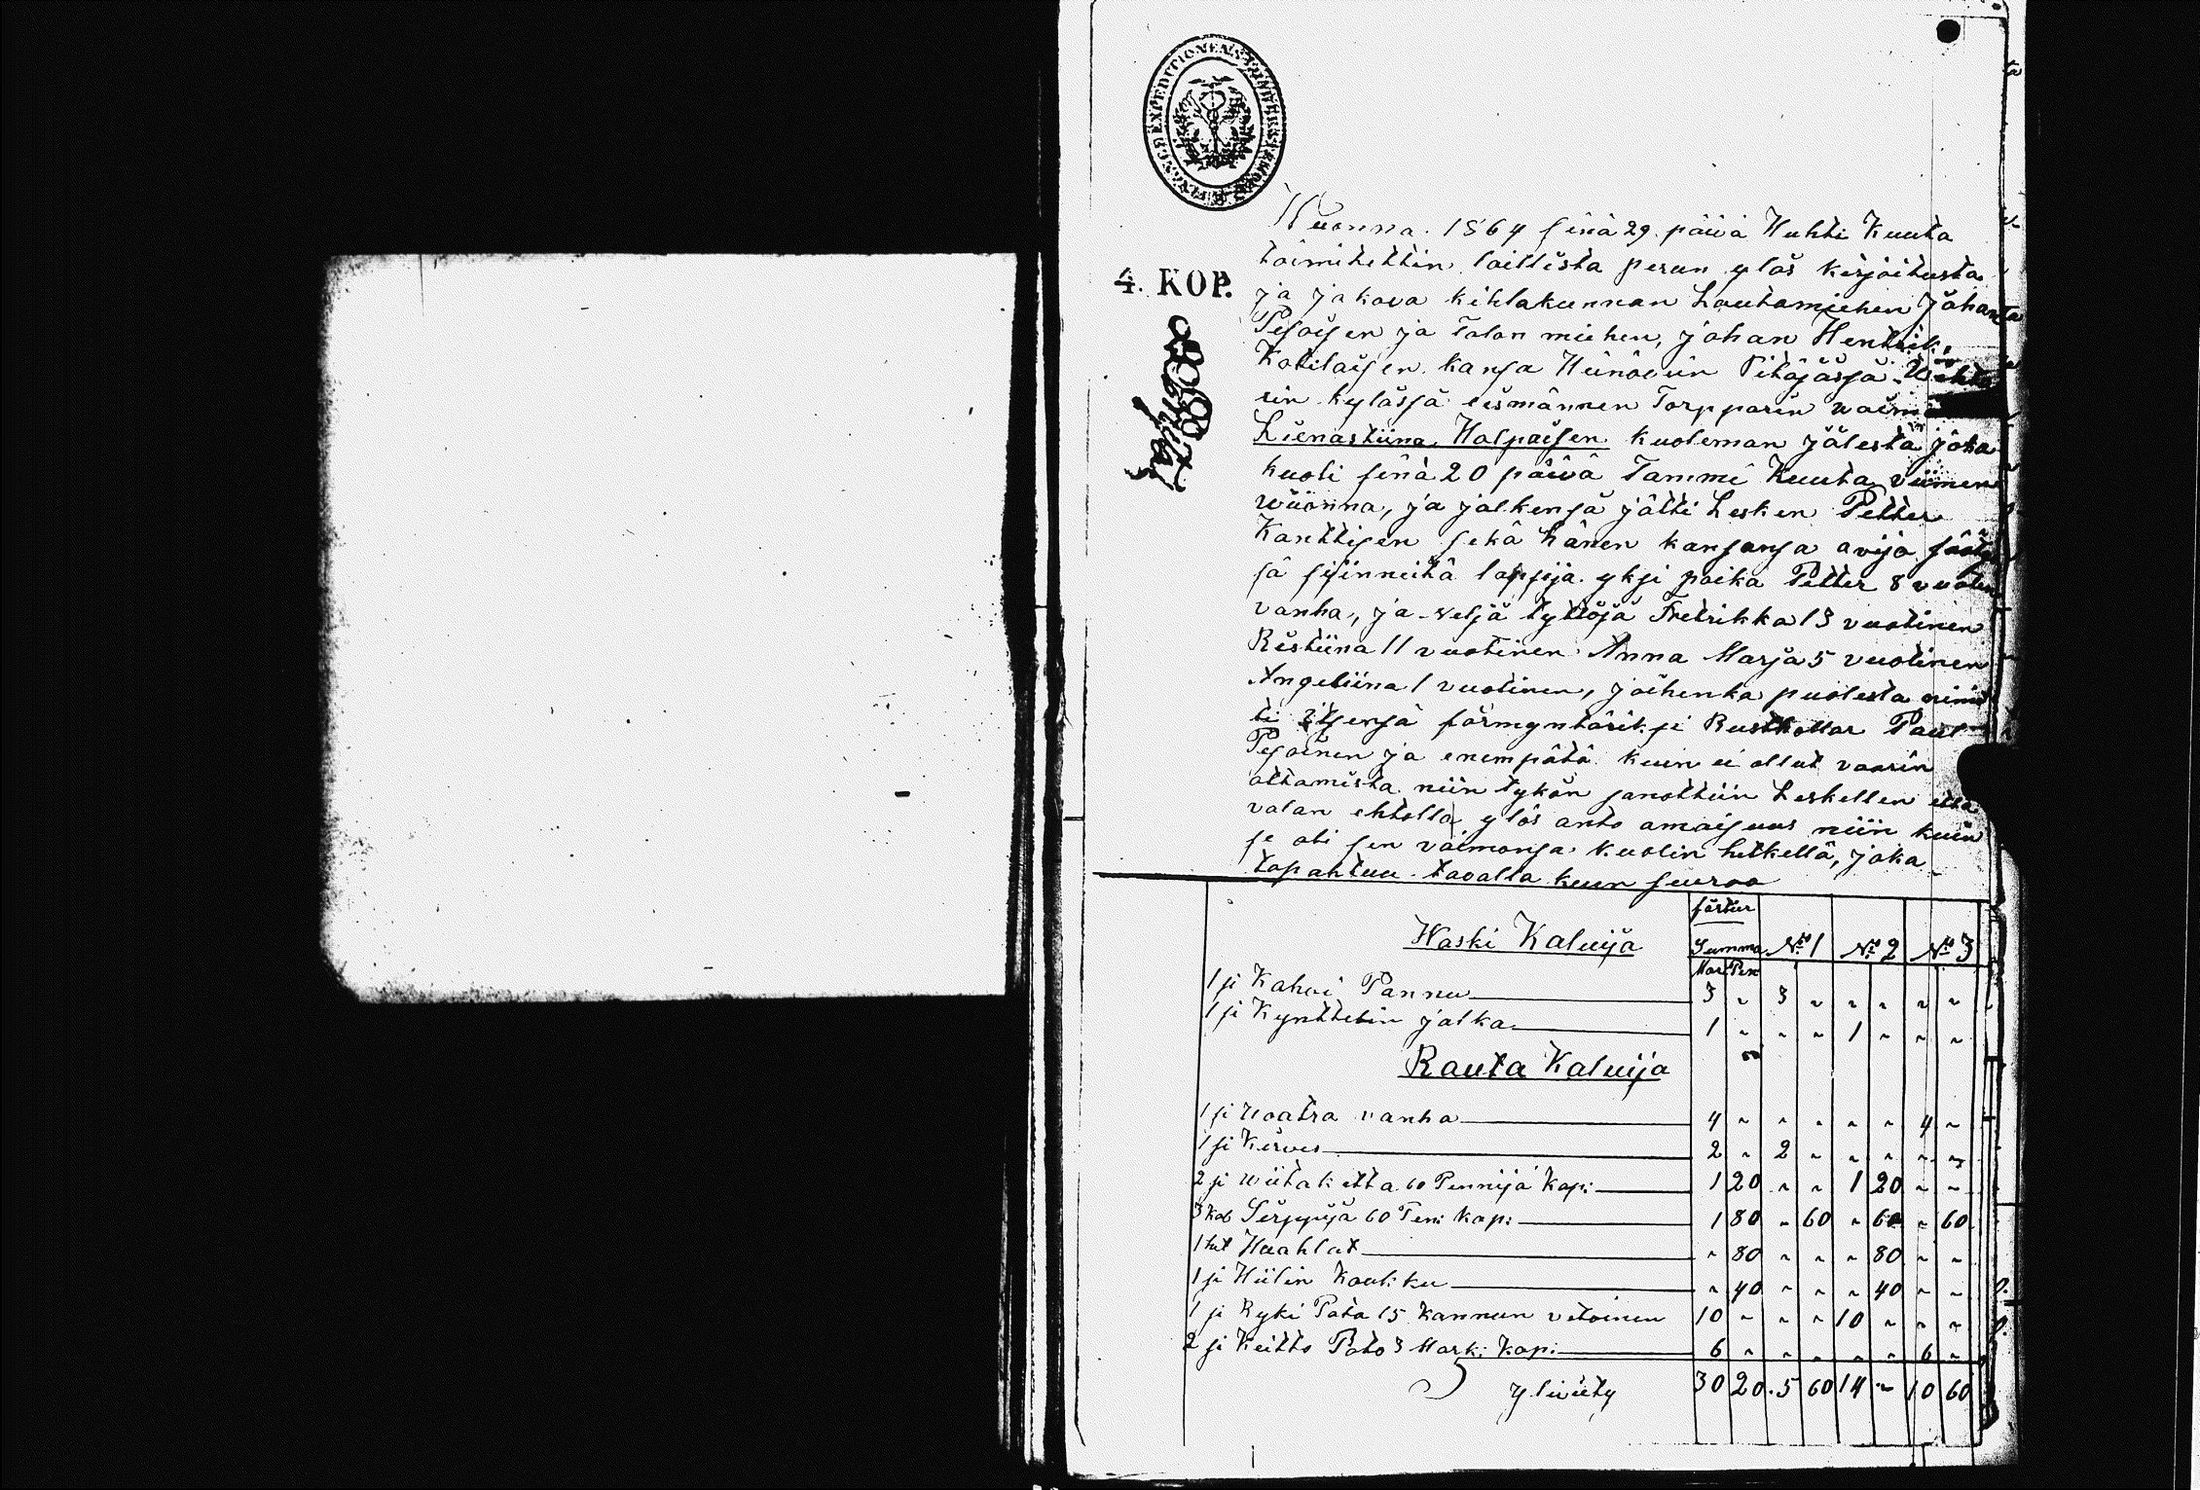 FINANCE EXPEDITIONENS
4. KOP.
Wuonna 1864 sinä 29 päivä Huhti Kuuta
toimitettin laillista perun ylös kirjoitusta
ja jakova kihlakunnan Lautamiehen Johan
Pesoisen ja Talon miehen, Johan Hentrik
Kotilaisen kansa Heinävein Pitäjässä
rin kylässä eismännen Torpparin vaimo
Lienastiina Halpaisen kuoleman jälestä joka
kuoli sinä 20 päivä Tammi Kuuta viimen
wuonna, ja jälkensä jätti Lesken Petter
Kanttisen sekä hänen kansansa avijo
sä sijinneitä lapsija yksi poika Petter 8 vuoten
vanha, ja neljä tyttöjä Fretrikka 13 vuotinen
Ristiina 11 vuotinen Anna Marja 5 vuotinen
Angeliina 1 vuotinen, joihenka puolesta nimi
ti itsensä förmyntäriksi Rusthollar Paul
Pesoinen ja enempätä kuin ei ollut vaarin
ottamista niin tykön sanottiin Leskellen että
valan ehtolla ylös anto amaisuus niin kuin
se oli sen vaimonsa kuolin hetkellä, joka
tapahtuu tavalla kuun seuraa
Waski Kaluija
Summa No 1 No 2 No 3
Mar Pen
1 si Kahvi Pannu 3 " 3 " " " " "
1 si Kynttelin jalka 1 " " " 1 " " "
Rauta Kaluija
1 si Uoatra vanha 4 " " " " " 4 "
1 si Kirves 2 " 2 " " " " "
2 si wiitak etta 60 Pennijä kap: 1 20 " " 1 20 " "
3 kab Sirppijä 60 Pen: kap: 1 80 " 60 " 60 " 60
1 Haahlat " 80 " " " 80 " "
1 si Hiilin Koukku " 40 " " " 40 " "
1 si Ryki Pata 15 kannun vetoinen 10 " " " 10 " " "
2 si Keitto Pato 3 Mark: kap: 6 " " " " " 6 "
yliviety 30 20 5 60 14 " 10 60